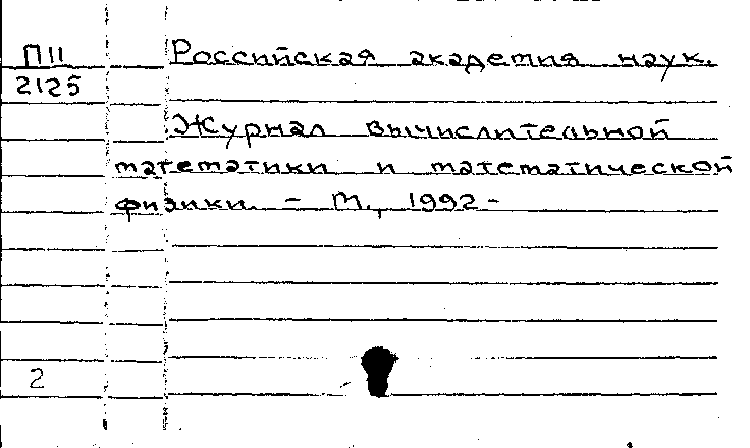 П11 Российская академия наук.
2125
Журнал вычислительной
математики и математической
физики. - М., 1992-
2